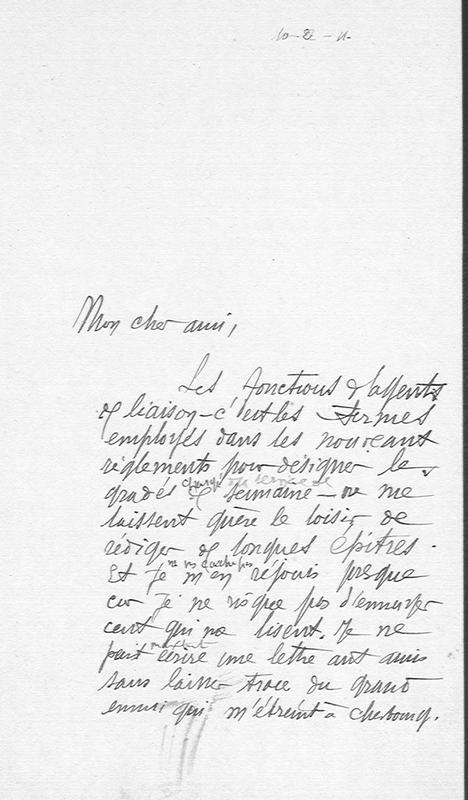 10-22-11.
Mon cher ami,
Les fonctions d'agents
de liaison - c'est les termes
employés dans les nouveaux
règlements pour désigner les
gradés de semaine - ne me
laissent guère le loisir de
rédiger de longues épitres.
Et je m'en réjouis presque
car je ne risque pas d'ennuyer
ceux qui me lisent. Je ne
puis écrire une lettre aux amis
sans laisser trace du grand
ennui qui m'étreint à Cherbourg.